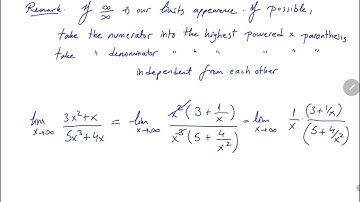 Remark. If ∞/∞ is our limits appearence. If possible,
take the numerator into the highest powered x paranthesis.
take " denominator " " " " "
independent from each other.
lim x→∞ (3x²+x)/(5x³+4x) = lim x→∞ x²(3+1/x)/x³(5+4/x²) = lim x→∞ 1/x · (3+1/x)/(5+4/x²)